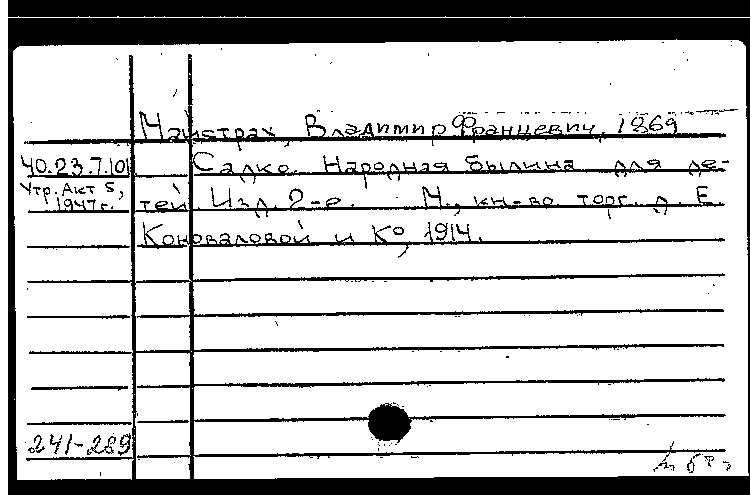 Майстрах, Владимир Францевич, 1869
40.23.7.101 Садко. Народная былина для де-
Утр. Акт 5, 1947 г. тей Изд. 2-е. М., кн-во торг. д. Е.
Коноваловой и К°, 1914.
241-289